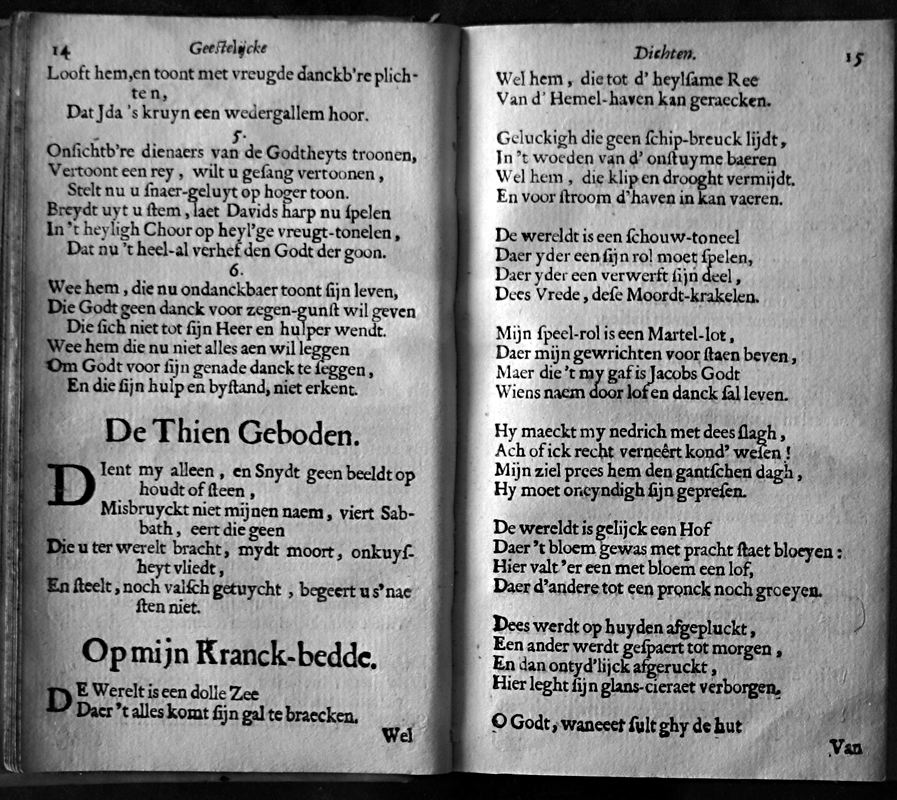 14
Geestelijcke
Looft hem,en toont met vreugde danckb're plich-
ten,
Dat Jda 's kruyn een wedergallem hoor.
5.
Onſichtb're dienaers van de Godtheyts troonen,
Vertoont een rey, wilt u geſang vertoonen,
Stelt nu u ſnaer-geluyt op hoger toon.
Breydt uyt u ſtem, laet Davids harp nu ſpelen
In 't heyligh Choor op heyl'ge vreugt-tonelen,
Dat nu 't heel-al verhef den Godt der goon.
6.
Wee hem, die nu ondanckbaer toont ſijn leven,
Die Godt geen danck voor zegen-gunſt wil geven
Die ſich niet tot ſijn Heer en hulper wendt.
Wee hem die nu niet alles aen wil leggen
Om Godt voor ſijn genade danck te ſeggen,
En die ſijn hulp en byſtand, niet erkent.
De Thien Geboden.
DIent my alleen, en Snydt geen beeldt op
houdt of ſteen,
Misbruyckt niet mijnen naem, viert Sab-
bath, eert die geen
Die u ter werelt bracht, mydt moort, onkuyſ-
heyt vliedt,
En ſteelt, noch valſch getuycht, begeert u s'nae
ſten niet.
Op mijn Kranck-bedde.
DE Werelt is een dolle Zee
Daer 't alles komt ſijn gal te braecken.
Wel
Dichten.
15
Wel hem, die tot d' heylſame Ree
Van d' Hemel-haven kan geraecken.
Geluckigh die geen ſchip-breuck lijdt,
In 't woeden van d' onſtuyme baeren
Wel hem, die klip en drooght vermijdt.
En voor ſtroom d'haven in kan vaeren.
De wereldt is een ſchouw-toneel
Daer yder een ſijn rol moet ſpelen,
Daer yder een verwerft ſijn deel,
Dees Vrede, deſe Moordt-krakelen.
Mijn ſpeel-rol is een Martel-lot,
Daer mijn gewrichten voor ſtaen beven,
Maer die 't my gaf is Jacobs Godt
Wiens naem door lof en danck ſal leven.
Hy maeckt my nedrich met dees ſlagh,
Ach of ick recht verneêrt kond' weſen!
Mijn ziel prees hem den gantſchen dagh,
Hy moet oneyndigh ſijn gepreſen.
De wereldt is gelijck een Hof
Daer 't bloem gewas met pracht ſtaet bloeyen:
Hier valt 'er een met bloem een lof,
Daer d'andere tot een pronck noch groeyen.
Dees werdt op huyden afgepluckt,
Een ander werdt geſpaert tot morgen,
En dan ontyd'lijck afgeruckt,
Hier leght ſijn glans-cieraet verborgen.
O Godt, waneeer ſult ghy de hut
Van